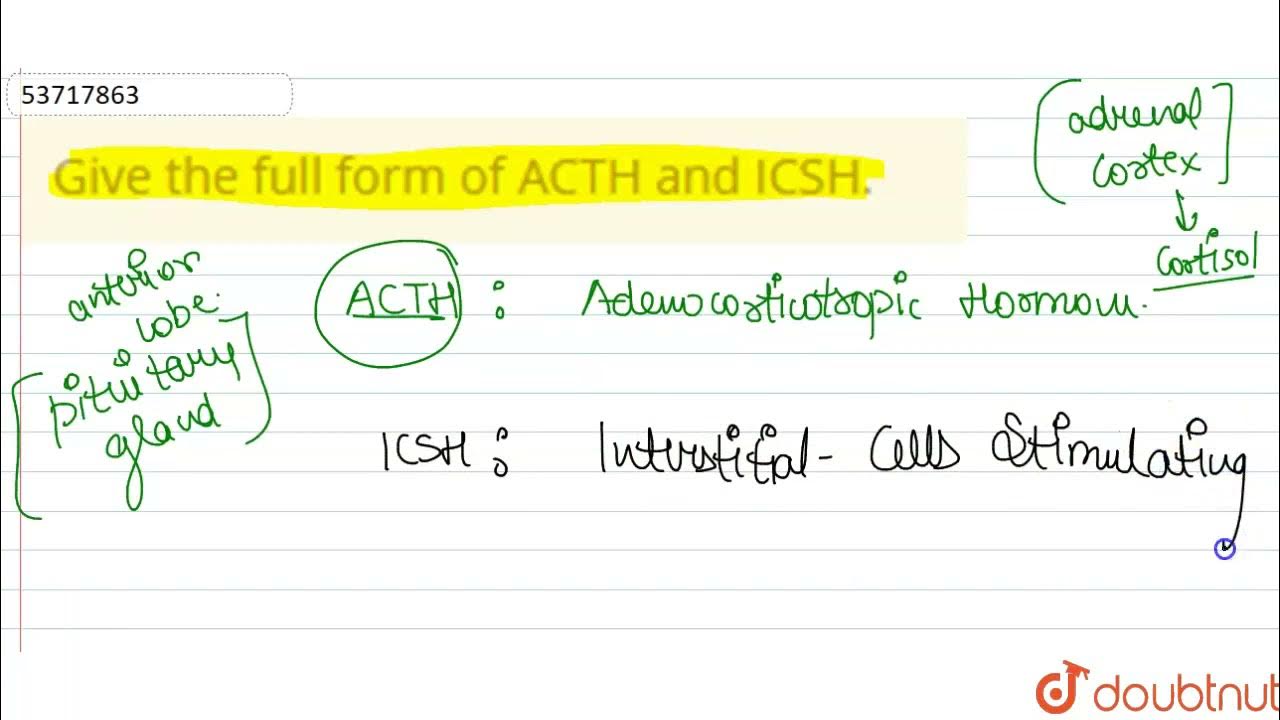 53717863
Give the full form of ACTH and ICSH.
adrenal
cortex
cortisol
anterior
lobe.
pituitary
gland
ACTH : Adenocorticotropic Hormon.
ICSH : Interstitial- Cells Stimulating
doubtnut